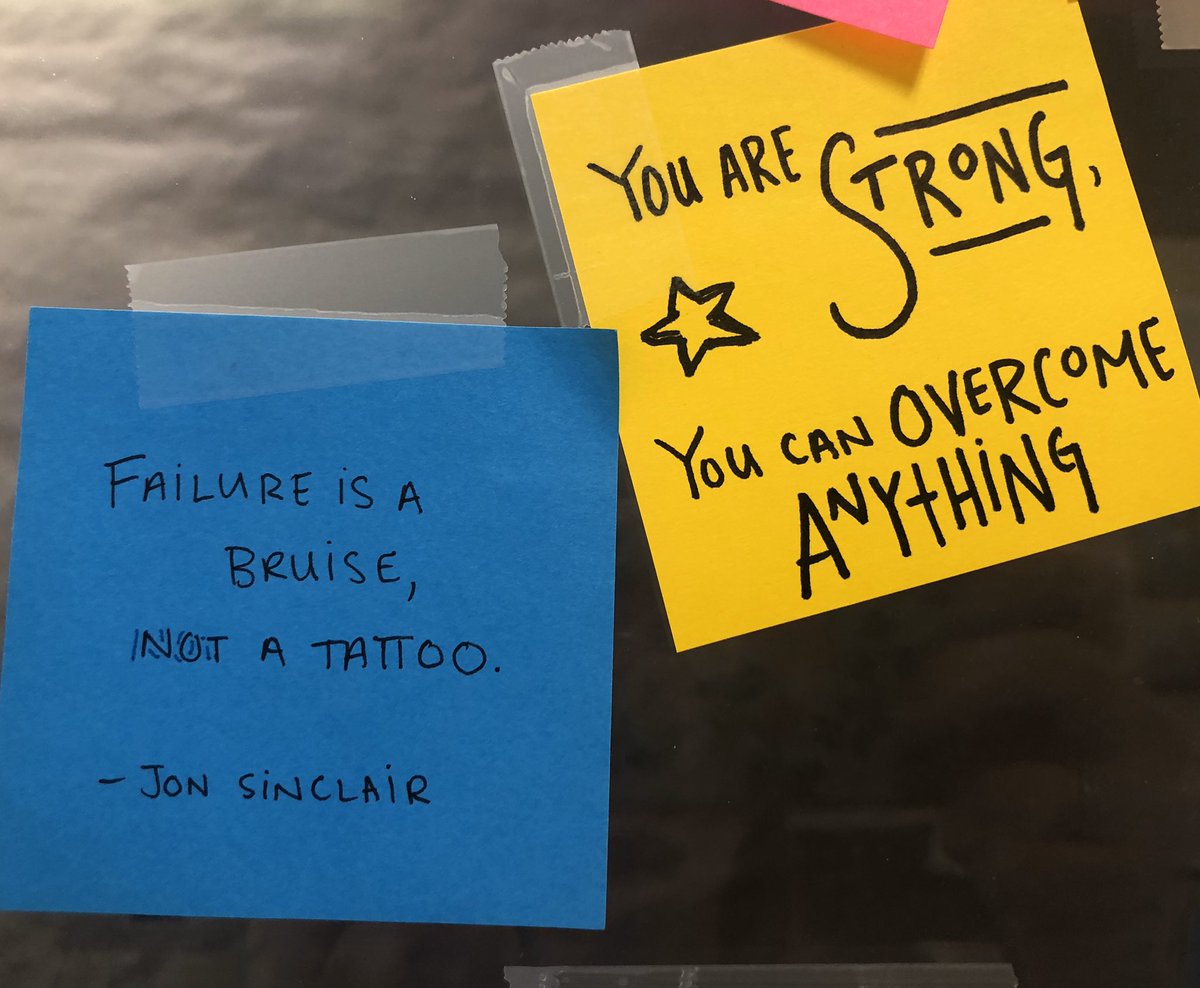 FAiLURE iS A
BRUiSE,
NOT A TATTOO.
- JON SiNCLAiR
YOU ARE STRONG,
YOU CAN OVERCOME
ANYTHiNG